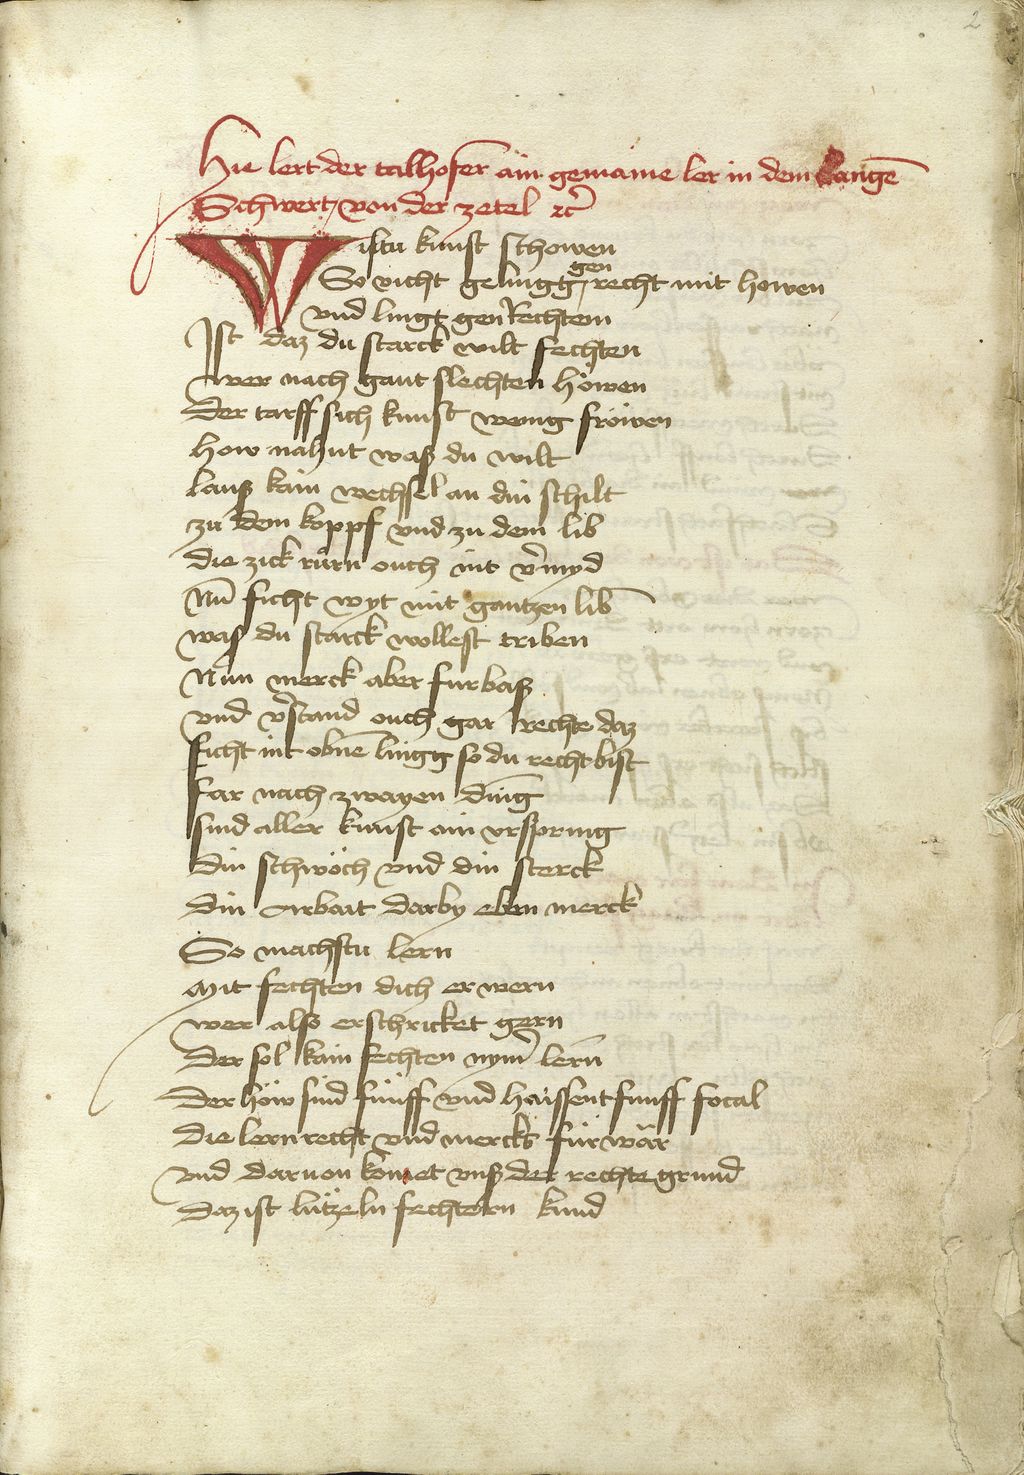 2
Hie lert der talhofer ain gemaine ler in dem langē
Schwert von der zetel ꝛc̄
Wistu kunst schowen
So vicht gelingg gen recht mit howen
vnd lingg gen Rechtem
Ist daz du starck wilt fechten
wer nach gaut slechten höwen
der tarff sich kunst wenig fröwen
how nahnt waß du wilt
lauß kain wechsel an din schilt
zu dem koppf vnd zu dem lib
die zick rürn ouch nit v̄myd
Nū ficht wyt mit gantzen lib
waß du starck wollest triben
Nun merck aber furbaß
vnd v̄stand ouch gar rechte daz
ficht nit obnē lingg so du recht bist
far nach zwayen ding
sind aller kunst ain vrspring
din schwöch vnd din sterck
din Arbait darby eben merck
So machstu lern
Mit fechten dich erwern
wer also erschricket gern
der sol kain fechten nym̄ lern
der höw sind fünff vnd haissent funff focal
die lern recht vnd mercks fürwar
vnd daruon kōmet vnß der rechte grund
daz ist lützeln fechtern kund